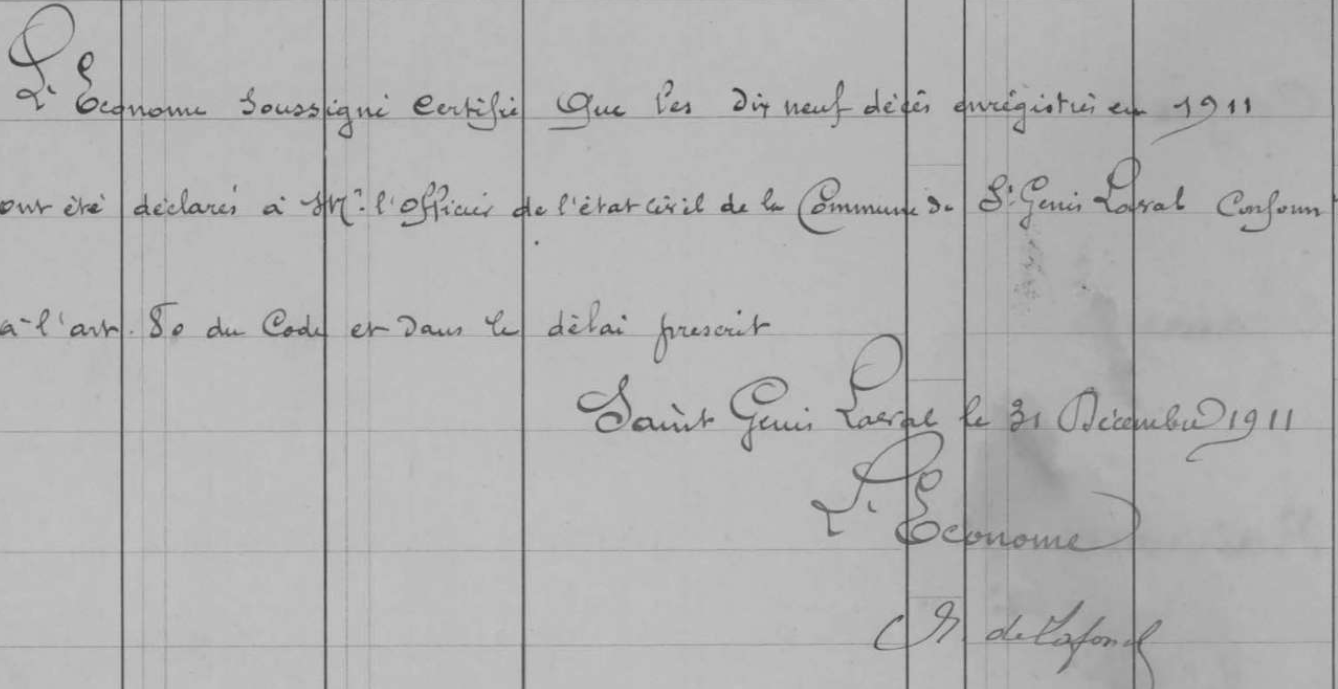 L'Econome Soussigné Certifie Que les Dix neuf décès enrégistrés en 1911
ont été déclarés à Mr. l'Officier de l'état civil de la Commune de St. Genis Laval Conform
à l'art. 80 du Code et Dans le délai prescrit
Saint Genis Laval le 31 Décembre 1911
L'Econome
de Lafond